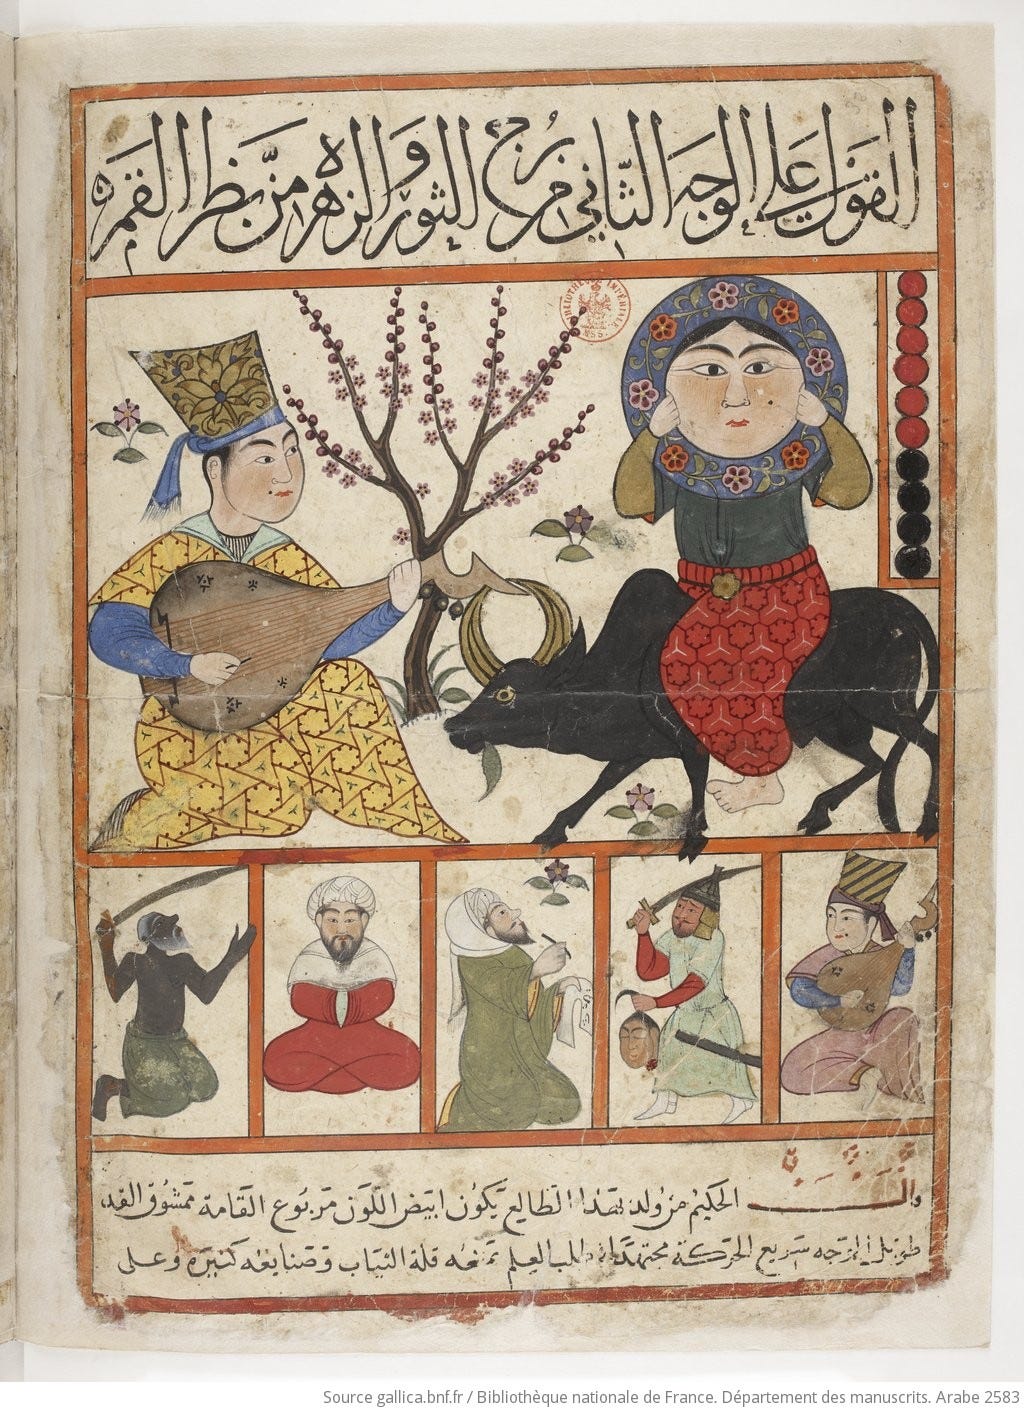 القول على الوجه الثاني من برج الثور والزهره من نظر القمر
BIBLIOTHÈQUE IMPÉRIALE MSS
قال الحكيم من ولد بهذا الطالع يكون ابيض اللون مربوع القامة ممشوق القد
طويل الوجه سريع الحركة مجتهدا في طلب العلم قلة الثياب وصنايعه كثيره وعلى
Source gallica.bnf.fr / Bibliothèque nationale de France. Département des manuscrits. Arabe 2583